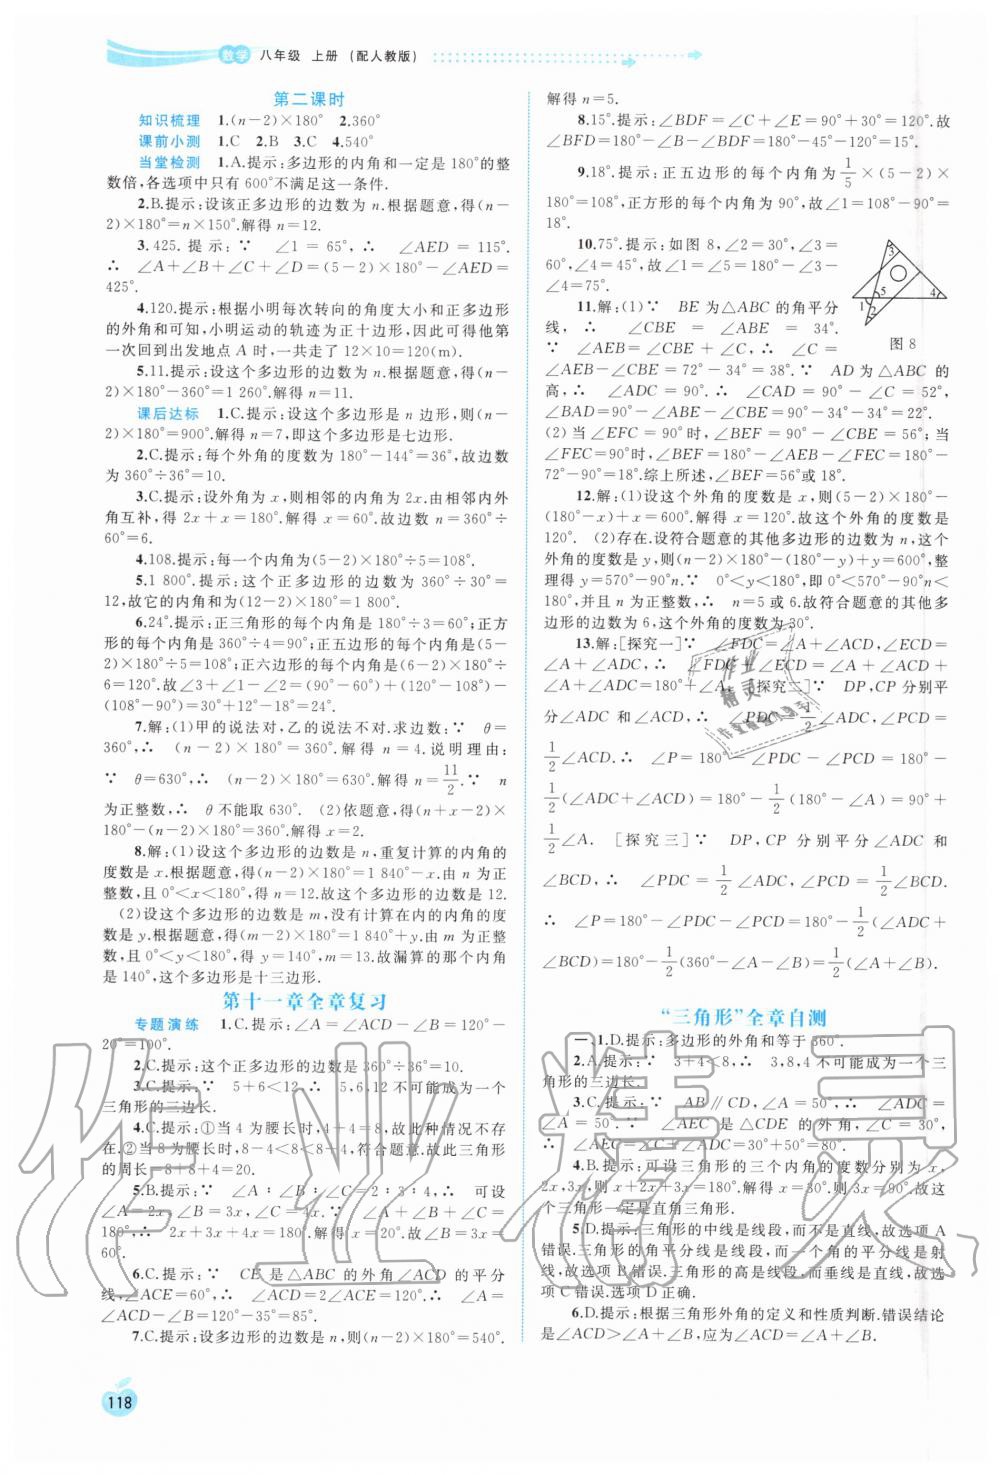 数学 八年级 上册 (配人教版)
第二课时
知识梳理 1.(n-2)×180° 2.360°
课前小测 1.C 2.B 3.C 4.540°
当堂检测 1.A.提示:多边形的内角和一定是180°的整
数倍,各选项中只有600°不满足这一条件.
2.B.提示:设该正多边形的边数为n.根据题意,得(n-
2)×180°=n×150°.解得n=12.
3.425.提示:∵ ∠1=65°,∴ ∠AED=115°.
∴ ∠A+∠B+∠C+∠D=(5-2)×180°-∠AED=
425°.
4.120.提示:根据小明每次转向的角度大小和正多边形
的外角和可知,小明运动的轨迹为正十边形,因此可得他第
一次回到出发地点A时,一共走了12×10=120(m).
5.11.提示:设这个多边形的边数为n.根据题意,得(n-
2)×180°-360°=1 260°.解得n=11.
课后达标 1.C.提示:设这个多边形是n边形,则(n-
2)×180°=900°.解得n=7,即这个多边形是七边形.
2.C.提示:每个外角的度数为180°-144°=36°,故边数
为360°÷36°=10.
3.C.提示:设外角为x,则相邻的内角为2x.由内外
角互补,得2x+x=180°.解得x=60°.故边数n=360°÷
60°=6.
4.108.提示:每一个内角为(5-2)×180°÷5=108°.
5.1 800°.提示:这个正多边形的边数为360°÷30°=
12,故它的内角和为(12-2)×180°=1 800°.
6.24°.提示:正三角形的每个内角是180°÷3=60°;正方
形的每个内角是360°÷4=90°;正五边形的每个内角是(5-
2)×180°÷5=108°;正六边形的每个内角是(6-2)×180°÷
6=120°.故∠3+∠1-∠2=(90°-60°)+(120°-108°)-
(108°-90°)=30°+12°-18°=24°.
7.解:(1)甲的说法对,乙的说法不对.求边数:∵ θ=
360°,∴ (n-2)×180°=360°.解得n=4.说明理由:
∵ θ=630°,∴ (n-2)×180°=630°.解得n=11/2.∵ n
为正整数,∴ θ不能取630°. (2)依题意,得(n+x-2)×
180°-(n-2)×180°=360°.解得x=2.
8.解:(1)设这个多边形的边数是n,重复计算的内角的
度数是x.根据题意,得(n-2)×180°=1 840°-x.由n为正
整数,且0°<x<180°,得n=12.故这个多边形的边数是12.
(2)设这个多边形的边数是m,没有计算在内的内角的度
数是y.根据题意,得(m-2)×180°=1 840°+y.由m为正整
数,且0°<y<180°,得y=140°,m=13.故漏算的那个内角
是140°,这个多边形是十三边形.
第十一章全章复习
专题演练 1.C.提示:∠A=∠ACD-∠B=120°-
20°=100°.
2.C.提示:这个正多边形的边数是360°÷36°=10.
3.C.提示:∵ 5+6<12,∴ 5,6,12不可能成为一个
三角形的三边长.
4.C.提示:①当4为腰长时,4+4=8,故此种情况不存
在.②当8为腰长时,8-4<8<8+4,符合题意.故此三角形
的周长=8+8+4=20.
5.B.提示:∵ ∠A∶∠B∶∠C=2∶3∶4,∴ 可设
∠A=2x,∠B=3x,∠C=4x.∵ ∠A+∠B+∠C=
180°,∴ 2x+3x+4x=180°.解得x=20°.故∠B=3x=
60°.
6.C.提示:∵ CE是△ABC的外角∠ACD的平分
线,∠ACE=60°,∴ ∠ACD=2∠ACE=120°.∴ ∠A=
∠ACD-∠B=120°-35°=85°.
7.C.提示:设多边形的边数是n,则(n-2)×180°=540°.
解得n=5.
8.15°.提示:∠BDF=∠C+∠E=90°+30°=120°.故
∠BFD=180°-∠B-∠BDF=180°-45°-120°=15°.
9.18°.提示:正五边形的每个内角为1/5×(5-2)×
180°=108°,正方形的每个内角为90°,故∠1=108°-90°=
18°.
10.75°.提示:如图8,∠2=30°,∠3=
60°,∠4=45°,故∠1=∠5=180°-∠3-
∠4=75°.
3
1 5 4
2
图8
11.解:(1)∵ BE为△ABC的角平分
线,∴ ∠CBE=∠ABE=34°.
∵ ∠AEB=∠CBE+∠C,∴ ∠C=
∠AEB-∠CBE=72°-34°=38°.∵ AD为△ABC的
高,∴ ∠ADC=90°.∴ ∠CAD=90°-∠C=52°,
∠BAD=90°-∠ABE-∠CBE=90°-34°-34°=22°.
(2)当∠EFC=90°时,∠BEF=90°-∠CBE=56°;当
∠FEC=90°时,∠BEF=180°-∠AEB-∠FEC=180°-
72°-90°=18°.综上所述,∠BEF=56°或18°.
12.解:(1)设这个外角的度数是x,则(5-2)×180°-
(180°-x)+x=600°.解得x=120°.故这个外角的度数是
120°. (2)存在.设符合题意的其他多边形的边数为n,这个
外角的度数是y,则(n-2)×180°-(180°-y)+y=600°,整
理得y=570°-90°n.∵ 0°<y<180°,即0°<570°-90°n<
180°,并且n为正整数,∴ n=5或6.故符合题意的其他多
边形的边数为6,这个外角的度数为30°.
13.解:[探究一]∵ ∠FDC=∠A+∠ACD,∠ECD=
∠A+∠ADC,∴ ∠FDC+∠ECD=∠A+∠ACD+
∠A+∠ADC=180°+∠A. [探究二]∵ DP,CP分别平
分∠ADC和∠ACD,∴ ∠PDC=1/2∠ADC,∠PCD=
1/2∠ACD.∴ ∠P=180°-∠PDC-∠PCD=180°-
1/2(∠ADC+∠ACD)=180°-1/2(180°-∠A)=90°+
1/2∠A. [探究三]∵ DP,CP分别平分∠ADC和
∠BCD,∴ ∠PDC=1/2∠ADC,∠PCD=1/2∠BCD.
∴ ∠P=180°-∠PDC-∠PCD=180°-1/2(∠ADC+
∠BCD)=180°-1/2(360°-∠A-∠B)=1/2(∠A+∠B).
“三角形”全章自测
一、1.D.提示:多边形的外角和等于360°.
2.A.提示:∵ 3+4<8,∴ 3,8,4不可能成为一个三角
形的三边长.
3.C.提示:∵ AB∥CD,∠A=50°,∴ ∠ADC=
∠A=50°.∵ ∠AEC是△CDE的外角,∠C=30°,
∴ ∠AEC=∠C+∠ADC=30°+50°=80°.
4.B.提示:可设三角形的三个内角的度数分别为x,
2x,3x,则x+2x+3x=180°.解得x=30°.则3x=90°.故这
个三角形一定是直角三角形.
5.D.提示:三角形的中线是线段,而不是直线,故选项A
错误.三角形的角平分线是线段,而一个角的平分线是射
线,故选项B错误.三角形的高是线段,而垂线是直线,故选
项C错误.选项D正确.
6.D.提示:根据三角形外角的定义和性质判断.错误结论
是∠ACD>∠A+∠B,应为∠ACD=∠A+∠B.
118
作业精灵